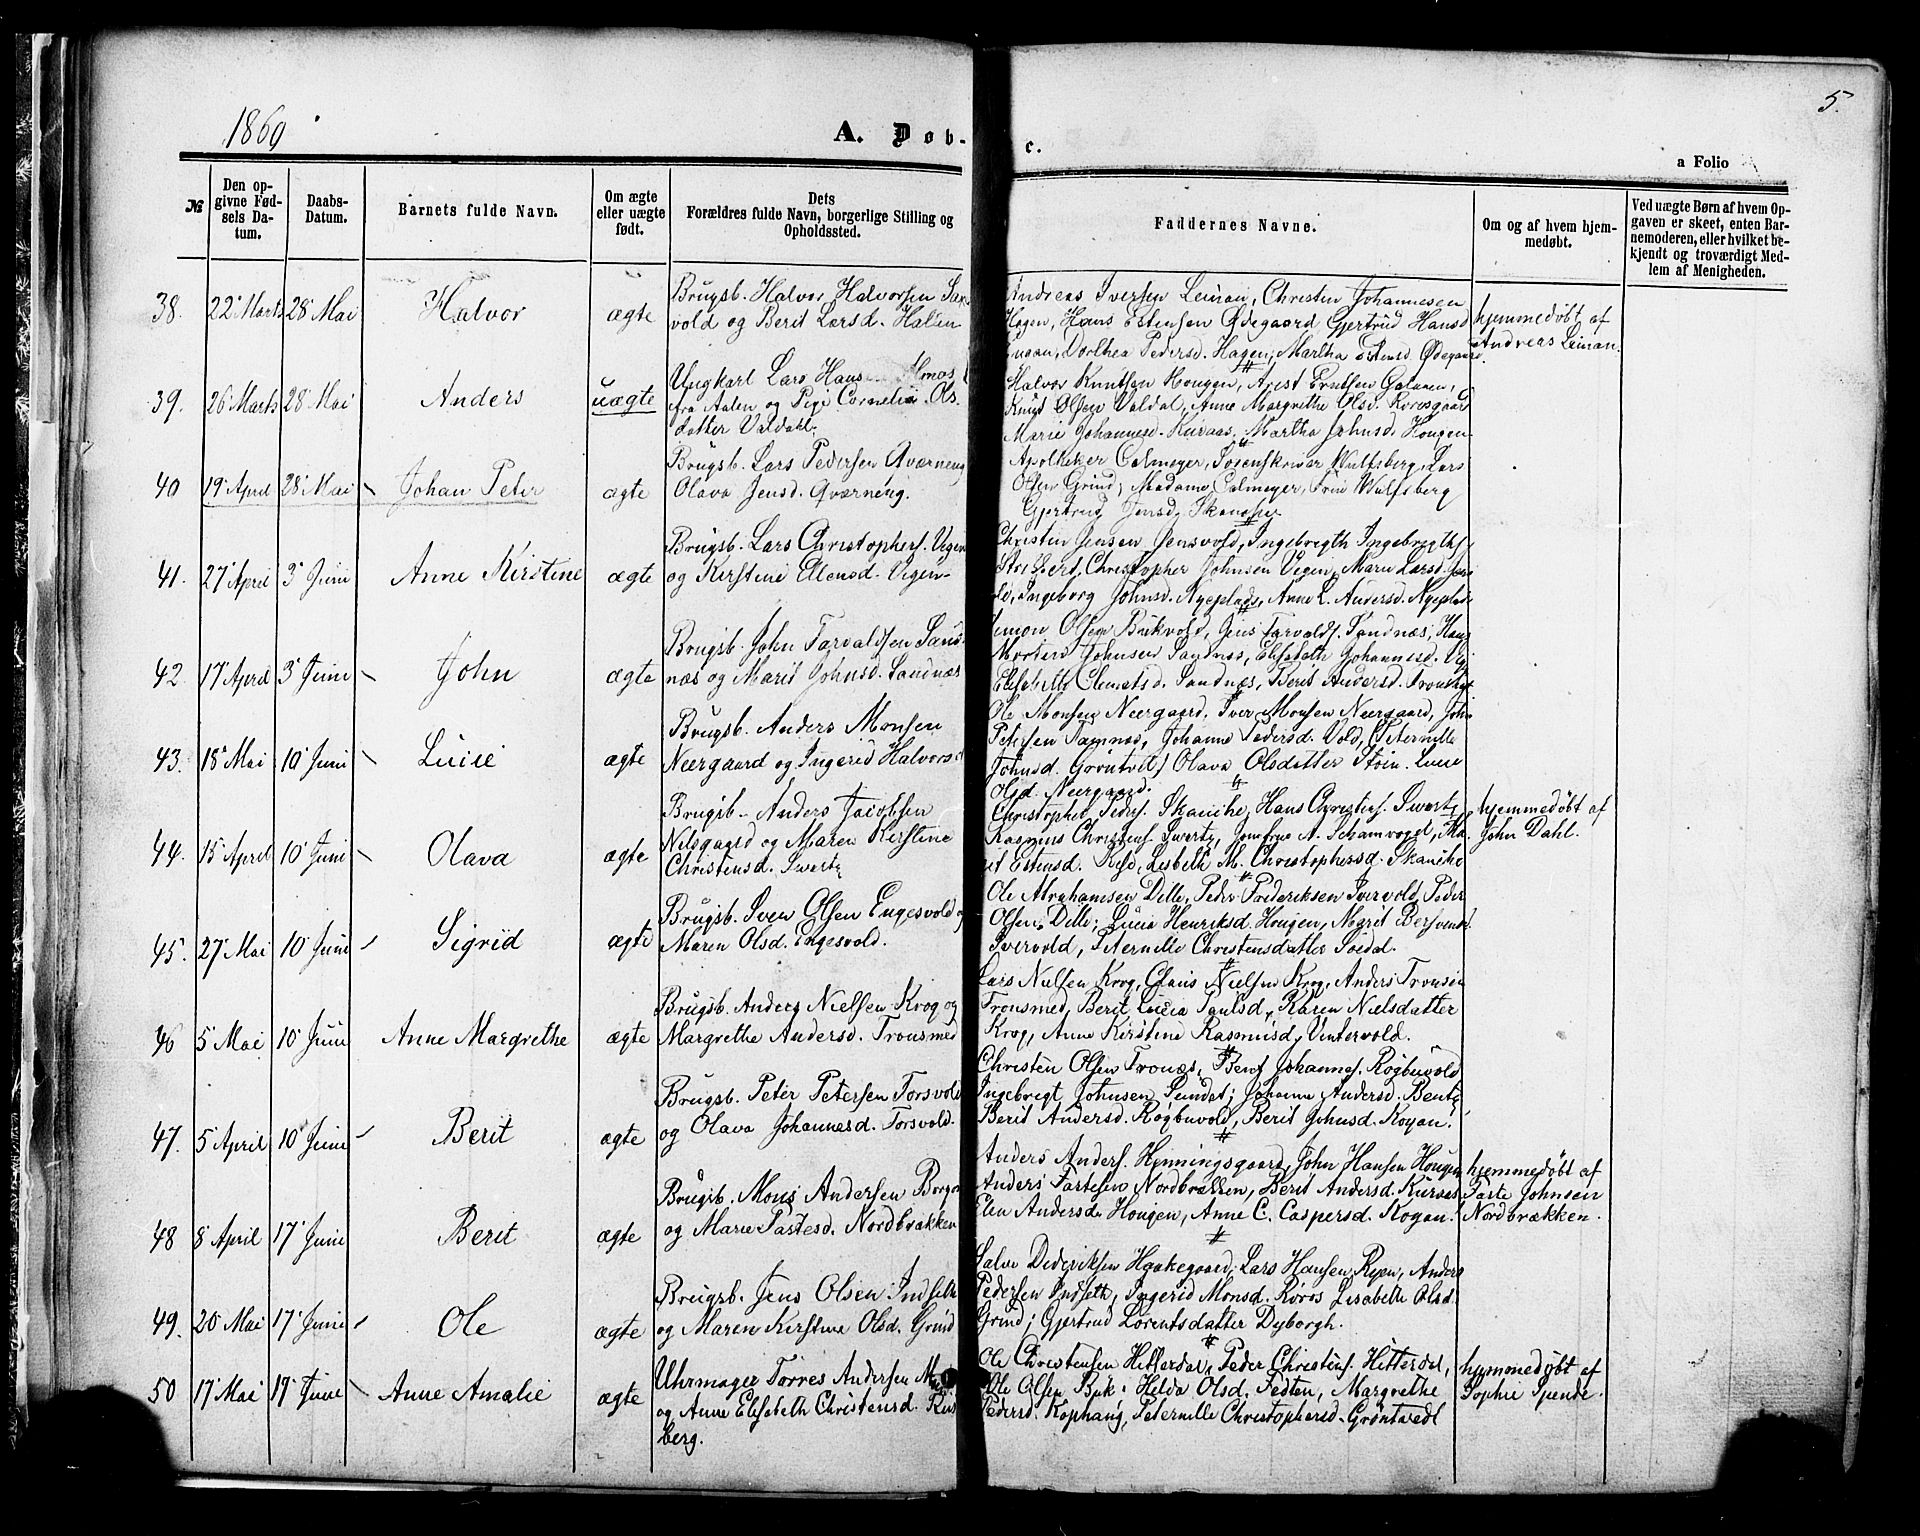 1860
5.
A. Døb-
c.
a Folio
№
Den op-
givne Fød-
sels Da-
tum.
Daabs-
Datum.
Barnets fulde Navn.
Om ægte
eller uægte
født.
Dets
Forældres fulde Navn, borgerlige Stilling og
Opholdssted.
Faddernes Navne.
Om og af hvem hjem-
medøbt.
Ved uægte Børn af hvem Op-
gaven er skeet, enten Bar-
nemoderen, eller hvilket be-
kjendt og troværdigt Med-
lem af Menigheden.
38. 22 Marts 28 Mai Halvor ægte
Brugsb. Halvor Halvorsen
vold og Berit Larsd.
Andreas Iversen Leinan, Christen Johannesen
Hagen, Hans Estensen Ødegaard, Gjertrud Hansd
Dorthea Pedersd. Hagen, Martha Estensd. Ødegaard.
hjemmedøbt af
Andreas Leinan.
39. 26 Marts 28 Mai Anders uægte
Ungkarl Lars
fra Aalen og Pige Cornelia Ols-
datter Valdahl.
Halvor Knutsen Hougen,
Knud Olsen Valdal, Anne Margrethe Olsd.
Marie Johannesd. Kuraas, Martha Johnsd. Hougen
40 19 April 28 Mai Johan Peter ægte
Brugsb. Lars Pedersen Qværneng
Olava Jensd. Qværneng.
Apotheker Calmeyer, Sorenskriver Wulfsberg, Lars
Olsen Grind, Madame Calmeyer, Wulfsberg
Gjertrud Jensd.
41. 27 April 3 Juni Anne Kirstine ægte
Brugsb. Lars Christophers. Vigen
og Kirstine Ellensd. Vigen
Christen Jensen Jensvold, Ingebrigth Ingebrigths.
Christopher Johnsen Vigen, Marie Larsd.
Ingeborg Johnsd. Nyeplads, Anne L. Andersd. Nyeplads
42 17 April 3 Juni John ægte
Brugsb. John Tarvaldsen Sand-
næs og Marit Johnsd. Sandnæs
Simon Olsen Bukvold, Jens Tarvalds. Sandnæs,
Morten Johnsen Sandnæs, Elisabeth Johannesd.
Elisabeth Clemetsd. Sandnæs, Berit Andersd.
43. 18 Mai 10 Juni Lucie ægte
Brugsb. Anders Monsen
Neergaard og Ingerid Halvorsd
Ole Monsen Neergaard, Iver Monsen Neergaard, John
Petersen Tamnæs, Johanne Pedersd. Vold, Peternille
Johnsd. Olava Olsdatter Lucie
Olsd. Neergaard.
44. 15 April 10 Juni Olava ægte
Brugsb. Anders Jacobsen
Nilsgaard og Maren Kirstine
Christensd. Swertz
Christopher Peders. Skancke, Hans Christens. Swertz
Rasmus Christens. Swertz, Jomfrue A. Schamvogel,
Estensd. Lisbeth M. Christophersd. Skancke
hjemmedøbt af
John Dahl.
45. 27 Mai 10 Juni Sigrid ægte
Brugsb. Sven Olsen Engesvold og
Maren Olsd. Engesvold.
Ole Abrahamsen Dille, Peder Frederiksen Iversvold, Peder
Olsen Dille, Lucia Henriksd. Hougen, Marit
Iversvold, Peternille Christensdatter
46 5 Mai 10 Juni Anne Margrethe ægte
Brugsb. Anders Nielsen Krog og
Margrethe Andersd. Tronsmed
Lars Nielsen Krog, Claus Nielsen Krog, Anders Tronsen
Tronsmed, Berit Lucia Paulsd, Karen Nielsdatter
Krog, Anne Kirstine Rasmusd, Vintervold.
47. 5 April 10 Juni Berit ægte
Brugsb. Peter Petersen Torsvold
og Olava Johannesd. Torsvold.
Christen Olsen Tronæs, Bent Johannes. Rogbuvold
Ingebrigt Johnsen Sundet, Johanne Andersd. Bentz
Berit Andersd. Rogbuvold, Berit Johnsd. Kojan.
48 8 April 17 Juni Berit ægte
Brugsb. Mons Andersen
og Marie Tartesd. Nordbrækken
Anders Anders. Henningsgaard, John Hansen Hougen
Anders Tartesen Nordbrækken, Berit Andersd. Kuraas
Elen Andersd. Hougen, Anne C. Caspersd. Kojan.
hjemmedøbt af
Tarte Johnsen
Nordbrækken.
49. 20 Mai 17 Juni Ole ægte
Brugsb. Jens Olsen Indseth
og Maren Kirstine Olsd. Grind
Salve Dideriksen Haakegaard, Lars Hansen Ryen, Anders
Pedersen Indseth, Ingerid Monsd. Røros Lisabeth Olsd
Grind, Gjertrud Lorentsdatter Dyborgh.
50 17 Mai 17 Juni Anne Amalie ægte
Uhrmager Torres Andersen
og Anne Elisabeth Christensd.
berg.
Ole Christensen Hitterdal, Peder Christens. Hitterdal,
Ole Olsen Buk, Helda Olsd. Fedten, Margrethe
Pedersd. Kophaug, Peternille Christophersd. Grøntvedt
hjemmedøbt af
Sophie